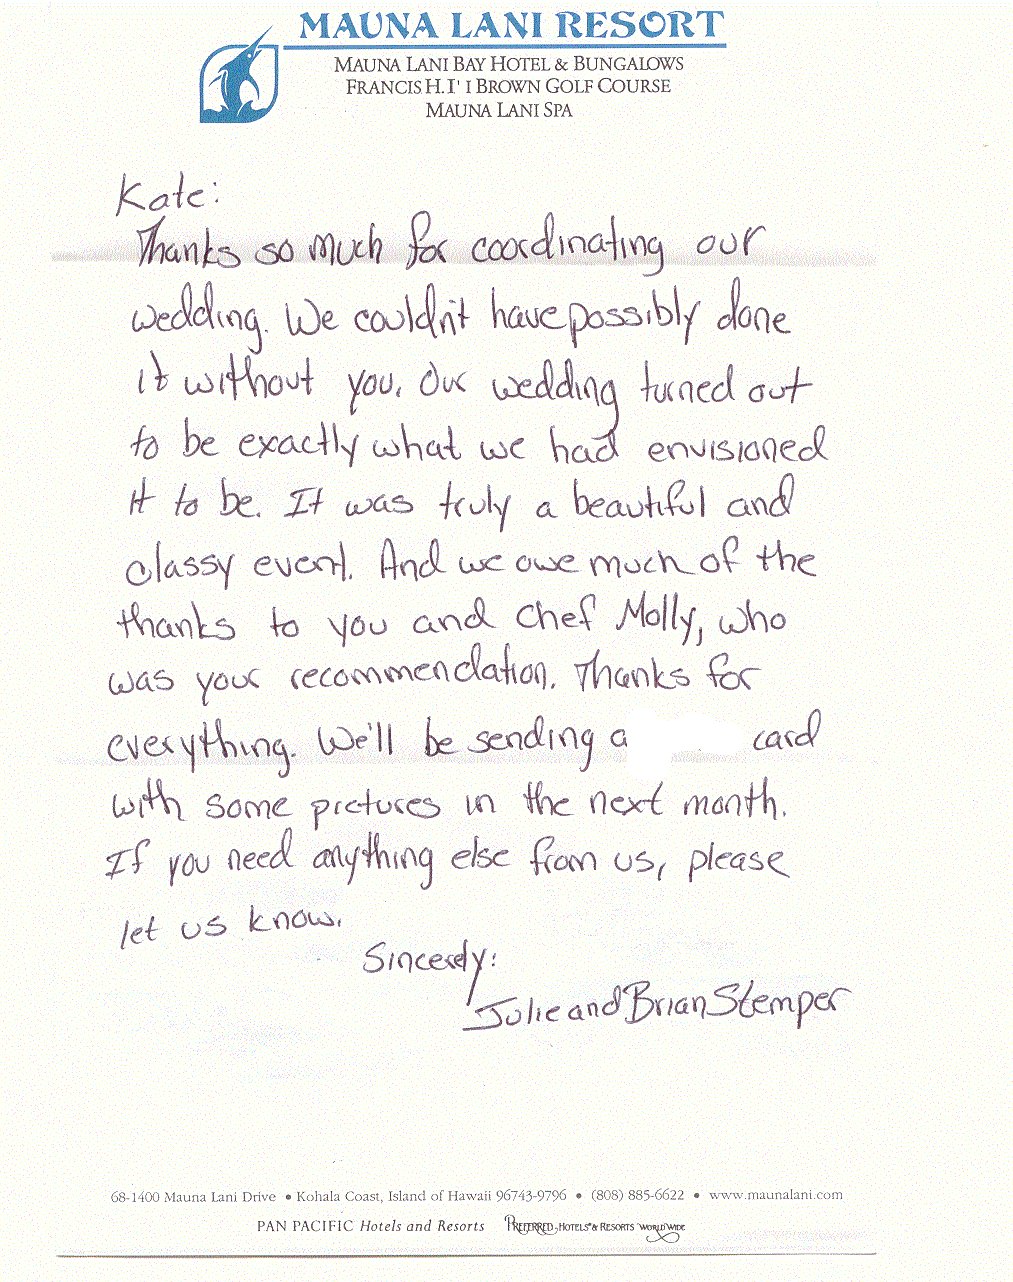 MAUNA LANI RESORT
MAUNA LANI BAY HOTEL & BUNGALOWS
FRANCIS H. I'I BROWN GOLF COURSE
MAUNA LANI SPA
Kate:
Thanks so much for coordinating our
wedding. We couldn't have possibly done
it without you. Our wedding turned out
to be exactly what we had envisioned
it to be. It was truly a beautiful and
classy event. And we owe much of the
thanks to you and Chef Molly, who
was your recommendation. Thanks for
everything. We'll be sending a card
with some pictures in the next month.
If you need anything else from us, please
let us know.
Sincerely:
Julie and Brian Stemper
68-1400 Mauna Lani Drive • Kohala Coast, Island of Hawaii 96743-9796 • (808) 885-6622 • www.maunalani.com
PAN PACIFIC Hotels and Resorts PREFERRED HOTELS & RESORTS WORLDWIDE